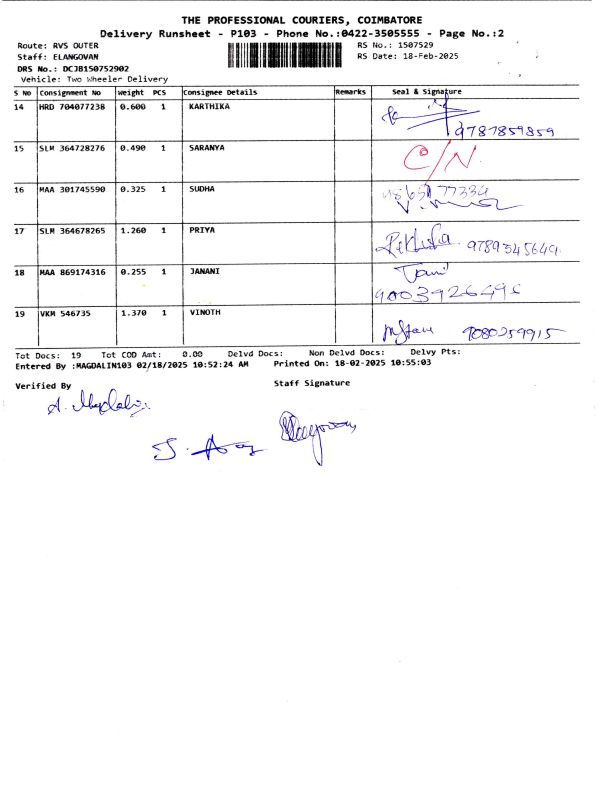 THE PROFESSIONAL COURIERS, COIMBATORE
Delivery Runsheet - P103 - Phone No.:0422-3505555 - Page No.:2
Route: RVS OUTER RS No.: 1507529
Staff: ELANGOVAN RS Date: 18-Feb-2025
DRS No.: DCJB150752902
Vehicle: Two Wheeler Delivery
S No Consignment No Weight PCS Consignee Details Remarks Seal & Signature
14 HRD 704077238 0.600 1 KARTHIKA
9787859859
15 SLM 364728276 0.490 1 SARANYA
C/N
16 MAA 301745590 0.325 1 SUDHA
17 SLM 364678265 1.260 1 PRIYA
9789345649
18 MAA 869174316 0.255 1 JANANI
9003926496
19 VKM 546735 1.370 1 VINOTH
9080259915
Tot Docs: 19 Tot COD Amt: 0.00 Delvd Docs: Non Delvd Docs: Delvy Pts:
Entered By :MAGDALIN103 02/18/2025 10:52:24 AM Printed On: 18-02-2025 10:55:03
Verified By Staff Signature